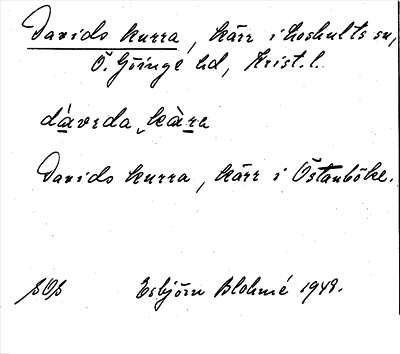 Davids kurra, kärr i Loshults sn,
Ö. Göinge hd, Krist. l.
dáveda kàra
Davids kurra, kärr i Östanböke.
SOS Esbjörn Blohmé 1949.